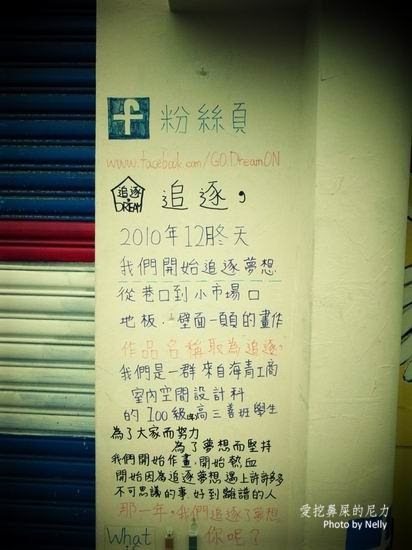 f 粉絲頁
www.facebook.com/GO.DreamON
追逐
DREAM
追逐,
2010年12月冬天
我們開始追逐夢想
從巷口到小市場口
地板.壁面一頁頁的畫作
作品名稱取為追逐,
我們是一群來自海青工商
室內空間設計科
的100級高三喜班學生
為了大家而努力
為了夢想而堅持
我們開始作畫.開始熱血
開始因為追逐夢想遇上許許多多
不可思議的事好到離譜的人
那一年,我們追逐了夢想
What
你呢?
愛挖鼻屎的尼力
Photo by Nelly